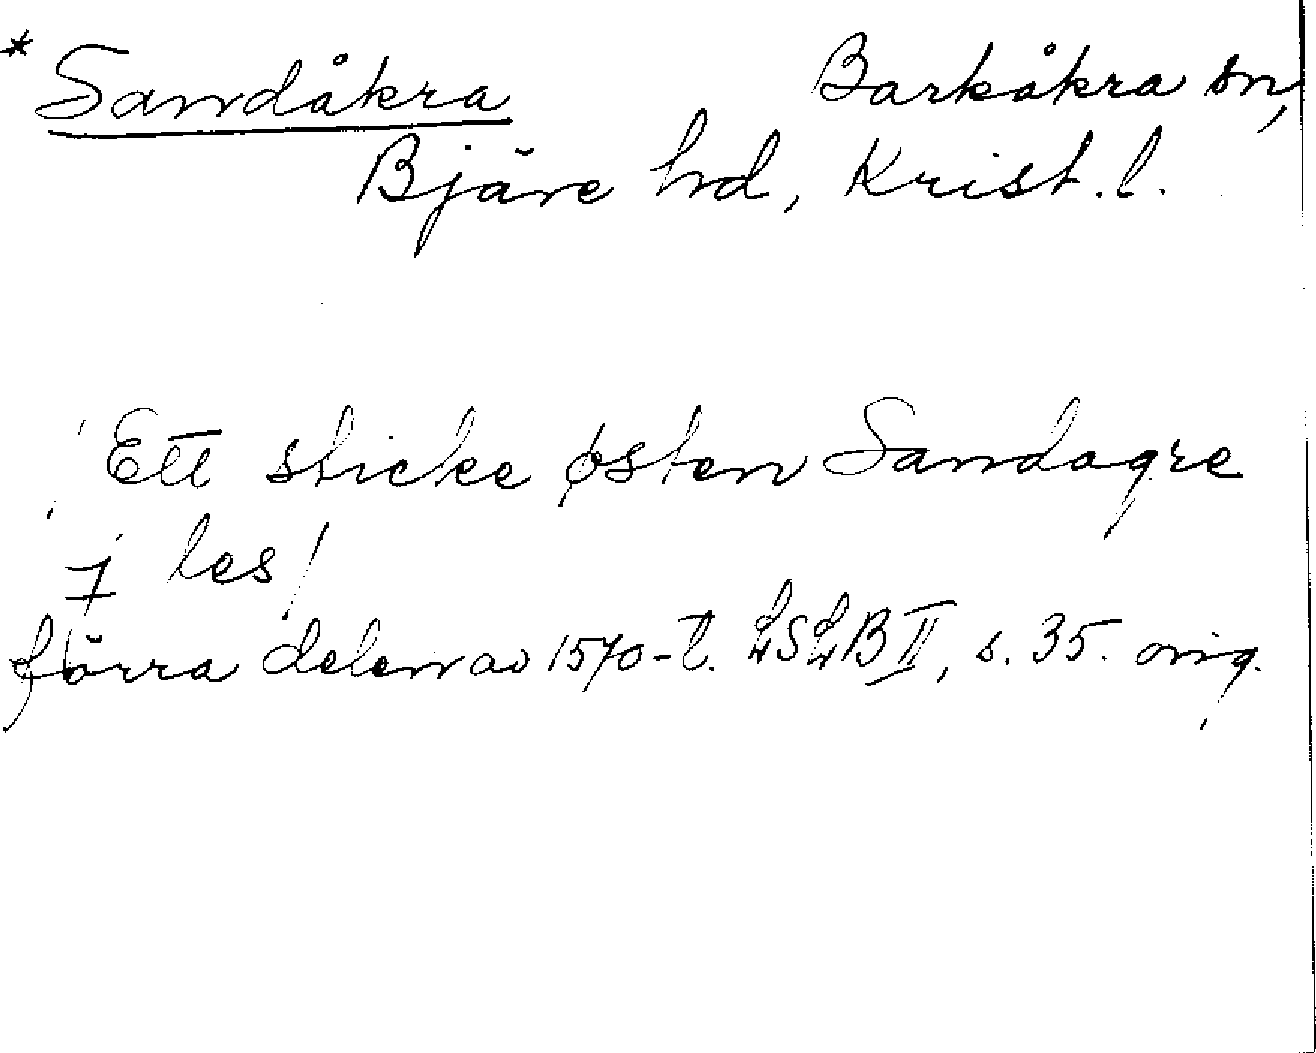 * Sandåkra Barkåkra sn,
Bjäre hd, Krist. l.
Ett sticke østen Sandagre
j les /
förra delen av 1570-t. LSLB II, s. 35. orig.